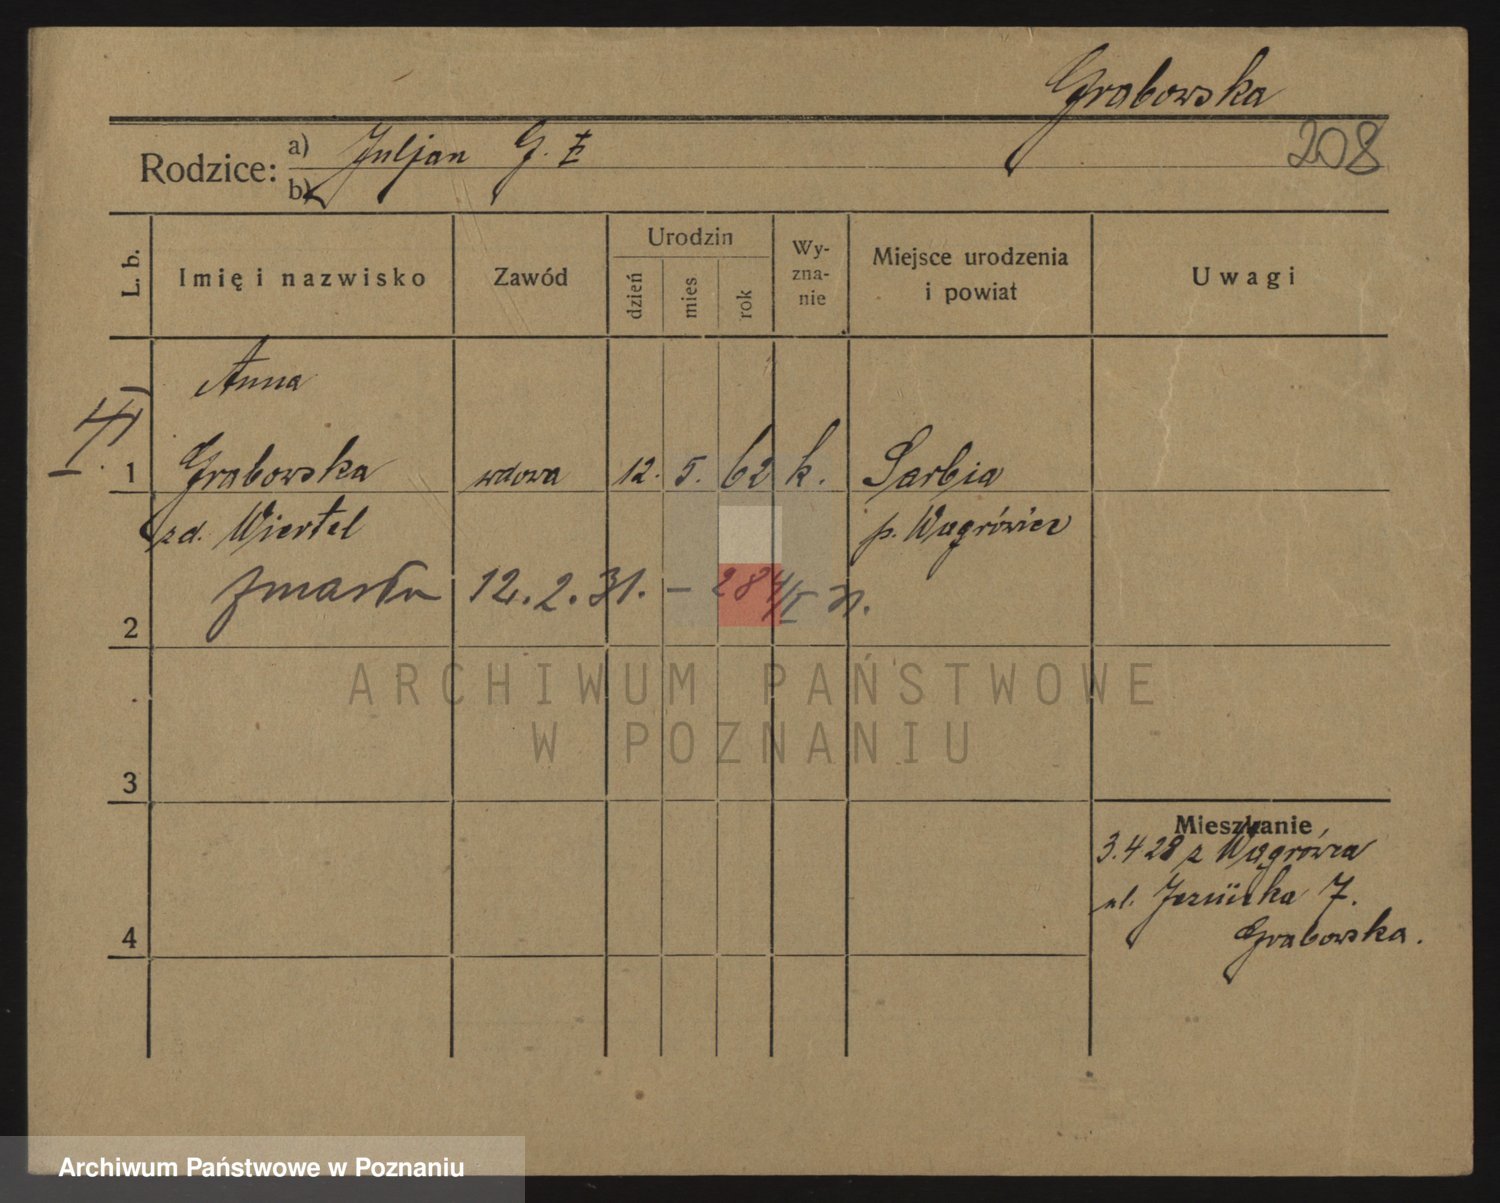 Grabowska
208
Rodzice: a) Juljan G. Ɨ
b)
L. b.
Imię i nazwisko
Zawód
Urodzin
dzień
mies
rok
Wy-
zna-
nie
Miejsce urodzenia
i powiat
Uwagi
Anna
1 Grabowska wdowa 12. 5. 62 k. Sarbia
zd. Wiertel p. Wągrówiec
zmarła 12.2.31. – 284/II 31.
2
ARCHIWUM PAŃSTWOWE
W POZNANIU
3
Mieszkanie
3.4 28 z Wągrówca
ul. Jezuicka 7.
Grabowska.
4
Archiwum Państwowe w Poznaniu